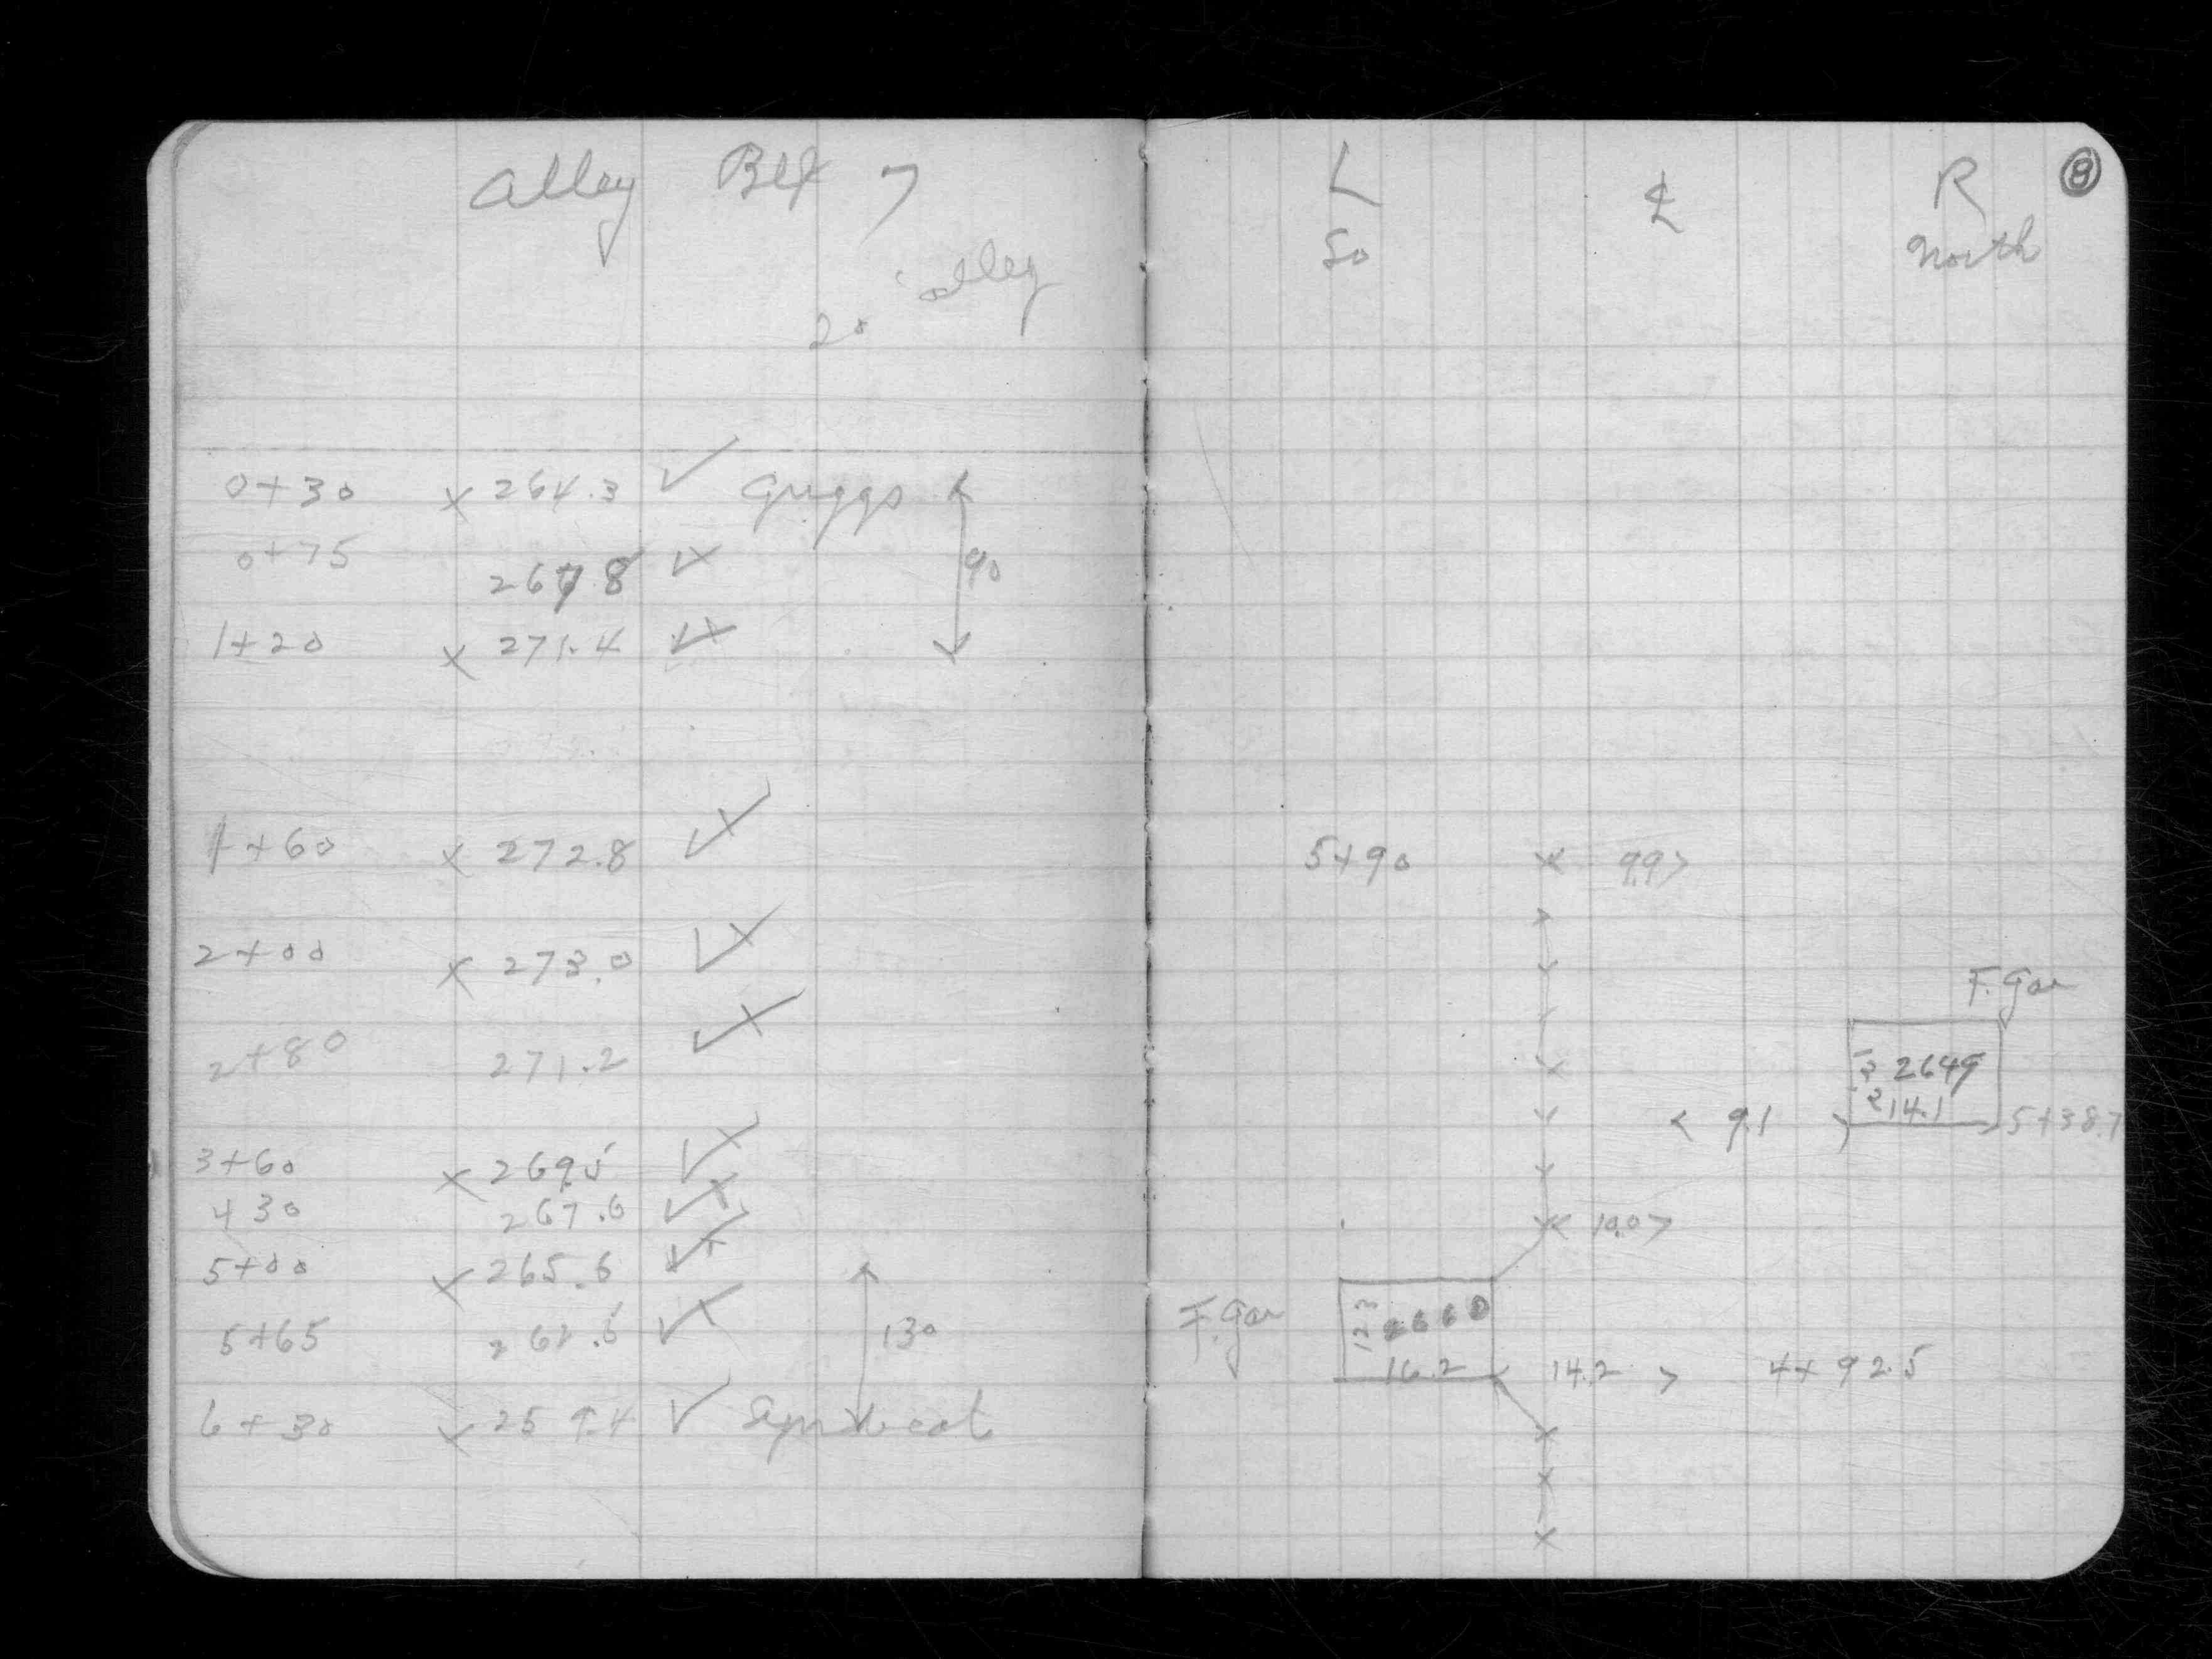 Alley Blk 7
20' alley
0+30 x 264.3 ✓ Griggs
0+75 267.8 ✓ 90
1+20 x 271.4 ✓
1+60 x 272.8 ✓
2+00 x 273.0 ✓
2+80 271.2 ✓
3+60 x 269.5 ✓
4 30 267.6 ✓
5+00 x 265.6 ✓
5+65 262.5 ✓ 130
6+30 x 259.4 ✓ Syndicat
8
L ℄ R
So North
5+90 x 9.9 >
F. Gar
264.9
14.1
< 9.1 > 5+38.7
< 10.0 >
F. Gar 12.3 266.0
16.2 < 14.2 > 4+92.5